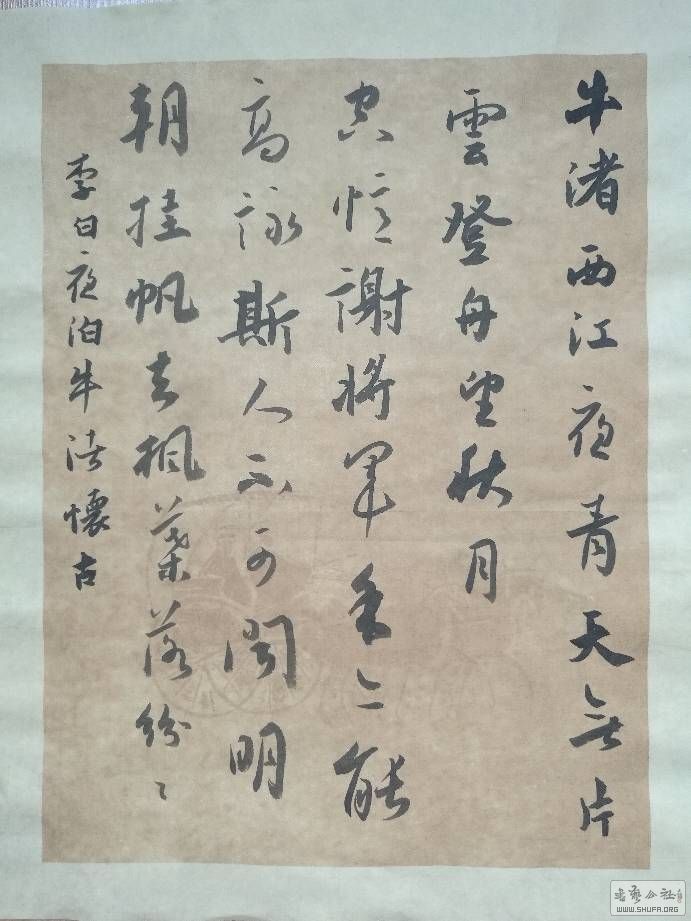 牛渚西江夜青天無片
雲登舟望秋月
空憶謝將軍余亦能
高詠斯人不可聞明
朝挂帆去楓葉落紛〻
李白夜泊牛渚懷古
書藝公社
WWW.SHUFA.ORG